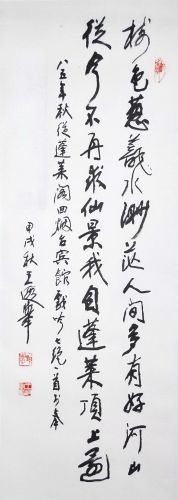 樹色蔥蘢水渺茫人间多有好河山
從今不再求仙景我自蓬萊頂上
八五年秋從蓬萊阁回烟台宾館戲吟七绝一首书奉
甲戌秋王